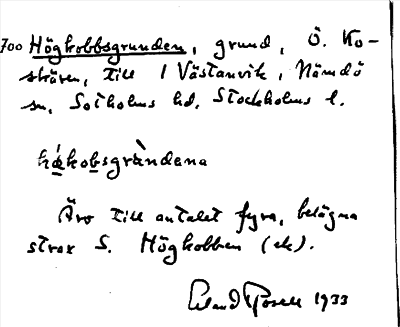 700 Högkobbsgrunden, grund, Ö. Ko-
skären, till 1 Västanvik, Nämdö
sn, Sotholms hd, Stockholms l.
hákobsgràndena
Äro till antalet fyra, belägna
strax S. Högkobben (ek).
Erland Rosell 1933